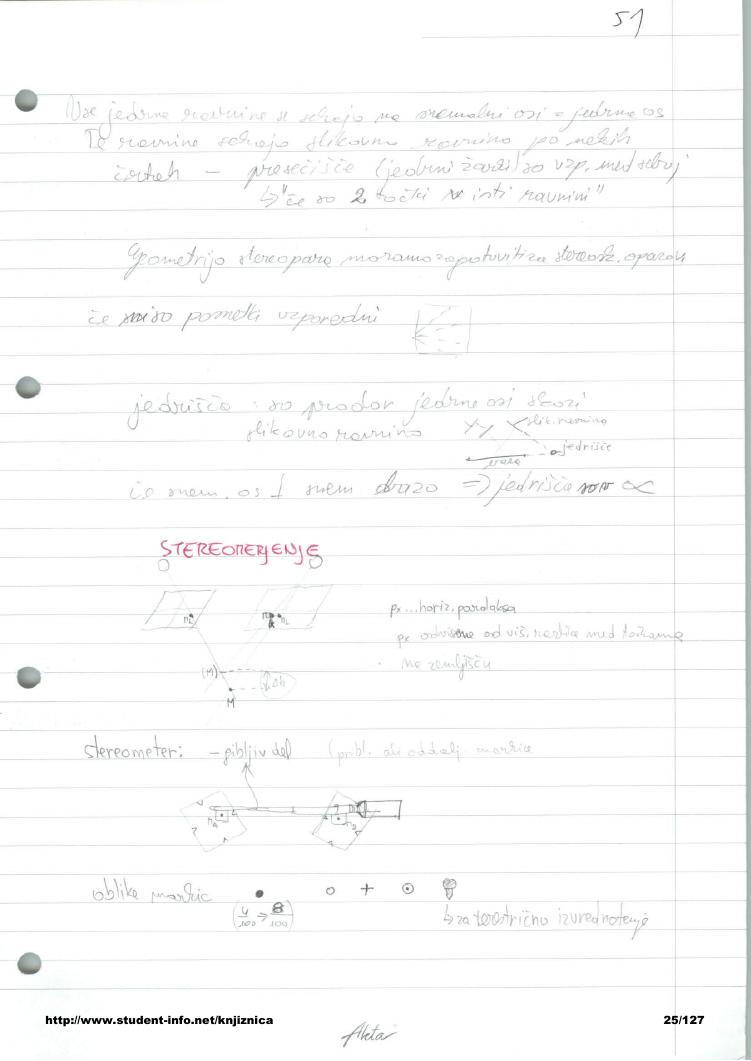 51
Vse jedrne ravnine se sekajo na snemalni osi = jedrna os
Te ravnine sekajo slikovno ravnino po nekih
črtah - presečišče (jedrni žarki) so vzp. med seboj
↳ "če so 2 točki v isti ravnini"
Geometrijo stereopara moramo za stereosk. opazov
če niso posnetki vzporedni
jedrišča: so prodor jedrne osi skozi
slikovno ravnino
slik. ravnina
jedrišče
baza
če snem. os ⊥ snem bazo => jedrišča ∝
STEREOMERJENJE
px ... horiz. paralaksa
px odvisna od viš. razlike med točkama
na zemljišču
(M)
Δh
M
stereometer: - gibljiv del (pribl. ali oddalj. markice
oblike markic
(4/100 → 8/100)
↳ za terestrično izvrednotenje
http://www.student-info.net/knjiznica
25/127